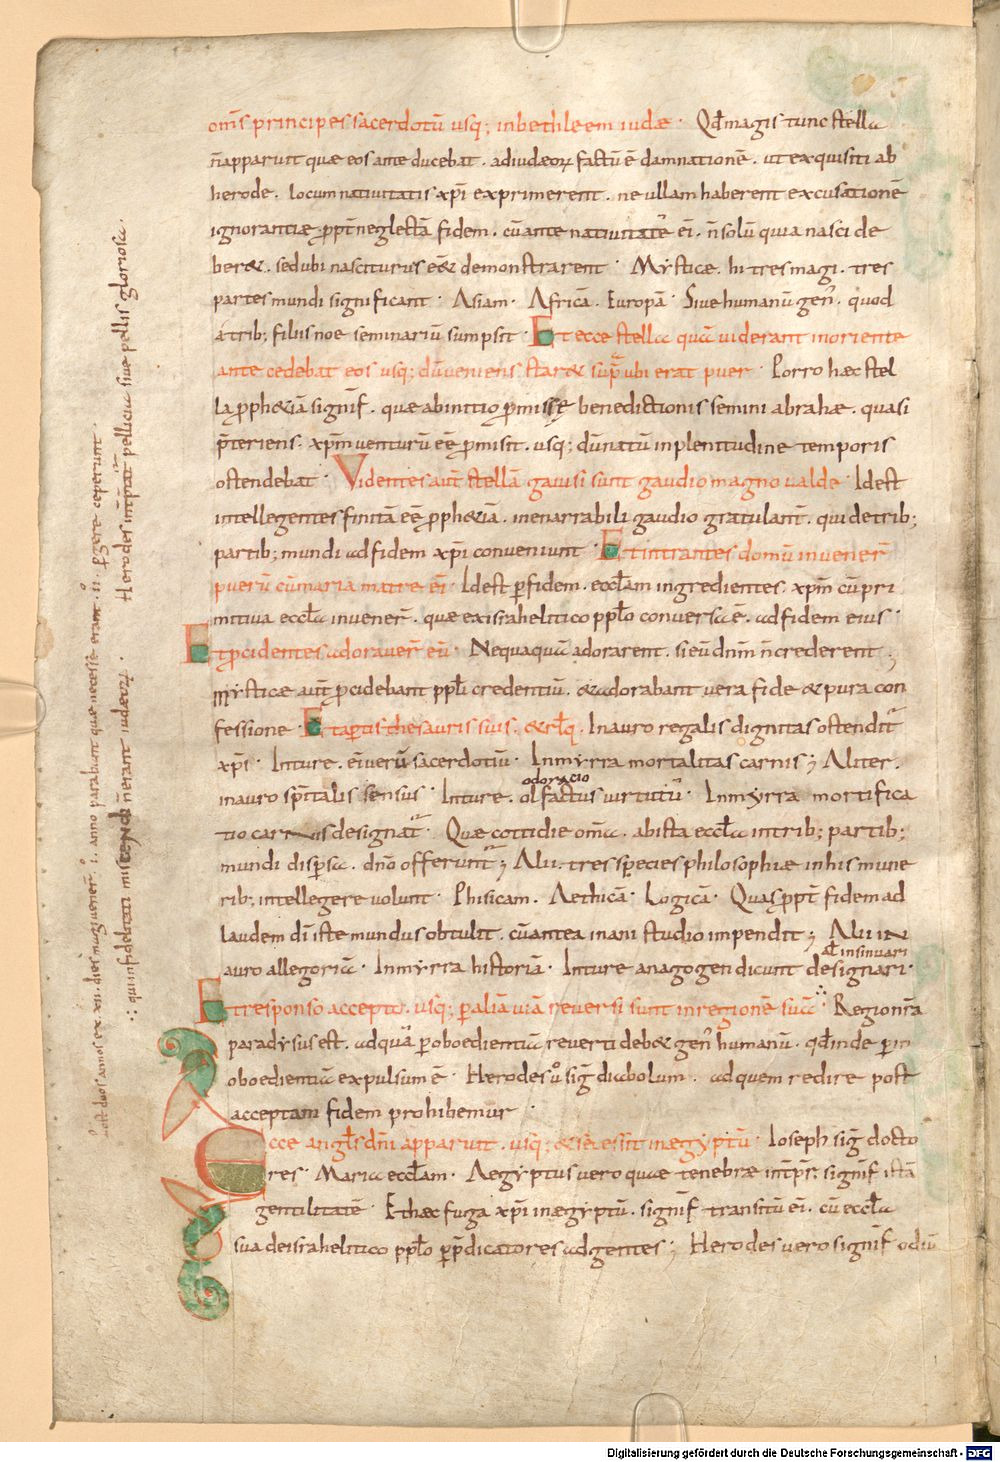 om̄s principes sacerdotū usq; inbethleem iudæ · Qd̄ magis tunc stella
n̄ apparuit quæ eos ante ducebat . adiudæorꝝ factū ē damnationē . ut exquisiti ab
herode . locum natiuitatis xp̄i exprimerent . ne ullam haberent excusationē
ignorantiæ . ꝓpt̄ neglectā fidem . cū ante natiuitatē ei . n̄ solū quia nasci de
ber& . sed ubi nasciturus eē& demonstrarent · Mysticæ . hi tres magi . tres
partes mundi significant · Asiam · Africā . Europā · Siue humanū gen̄ . quod
a trib; filiis noe seminariū sumpsit · Et ecce stella quā uiderant in oriente
ante cedebat eos usq; dū ueniens star& sup̄ ubi erat puer · Porro hæc stel
la ꝓph&iā signif̄ . quæ ab initio ꝓmissę benedictionis semini abrahæ . quasi
p̄teriens . xp̄m uenturū eē ꝓmisit . usq; dū natū in plenitudine temporis
ostendebat · Videntes aūt stellā gauisi sunt gaudio magno ualde · Idest
intellegentes finitā eē ꝓph&iā . inenarrabili gaudio gratulant̄ . qui de trib;
partib; mundi ad fidem xp̄i conueniunt · Et intrantes domū inuener̄
puerū cū maria matre ei · Idest ꝑ fidem . eccl̄am ingredientes . xp̄m cū pri
mitiua eccl̄a inuener̄ . quæ ex israhelitico ppl̄o conuersa ē . ad fidem eius ·
Et ꝓcidentes adorauer̄ eū · Nequaquā adorarent . si eū dn̄m n̄ crederent ;
mysticæ aūt ꝓcidebant ppl̄i credentiū . & adorabant uera fide & pura con
fessione · Et aꝑtis thesauris suis . & rl̄q . In auro regalis dignitas ostendit᷑
xp̄i · In ture . ei uerū sacerdotiū · In myrra mortalitas carnis ; Aliter .
odoracio
in auro sp̄italis sensus · In ture . olfactus uirtutū · In myrra mortifica
tio carnis designat᷑ · Quæ cottidie om̄a . ab ista eccl̄a in trib; partib;
mundi disꝑsa . dn̄o offerunt᷑ ; Alii . tres species philosophiæ in his mune
rib; intellegere uolunt · Phisicam . Aethicā · Logicā · Quas ꝓpt̄ fidem ad
laudem dī iste mundus obtulit . cū antea inani studio impendit ; Alii in
ał insinuari
auro allegoriā · In myrra historiā · In ture anagogen dicunt designari ·
Et responso accepto . usq; ꝑ aliā uiā reuersi sunt in regionē suā ∴ Regio nr̄a
paradysus est . ad quā ꝑ oboedientiā reuerti deb& gen̄ humanū . qd̄ inde ꝑ in
oboedientiā expulsum ē · Herodes ů sig̅ diabolum . ad quem redire post
acceptam fidem prohibemur ·
Ecce angl̄s dn̄i apparuit . usq; & secessit in ægyptū · Ioseph sig̅ docto
res · Maria eccl̄am · Aegyptus uero quæ tenebræ int̄pr̄ . signif̄ istā
gentilitatē · Et hæc fuga xp̄i in ægyptū . signif̄ transitū ei . cū eccl̄a
sua de israhelitico ppl̄o ꝑ p̄dicatores ad gentes ; Herodes uero signif̄ odiū
post duos annos ex . xii . dies magi uener̄ . i . anno parabant quæ necesse erant . ii . ꝑgere ceperunt .
∴ qui infidelitati miscendo n̄ erant iudæorū . Herodes int̄p̄tat᷑ pellicia siue pellis gloriosa .
Digitalisierung gefördert durch die Deutsche Forschungsgemeinschaft - DFG